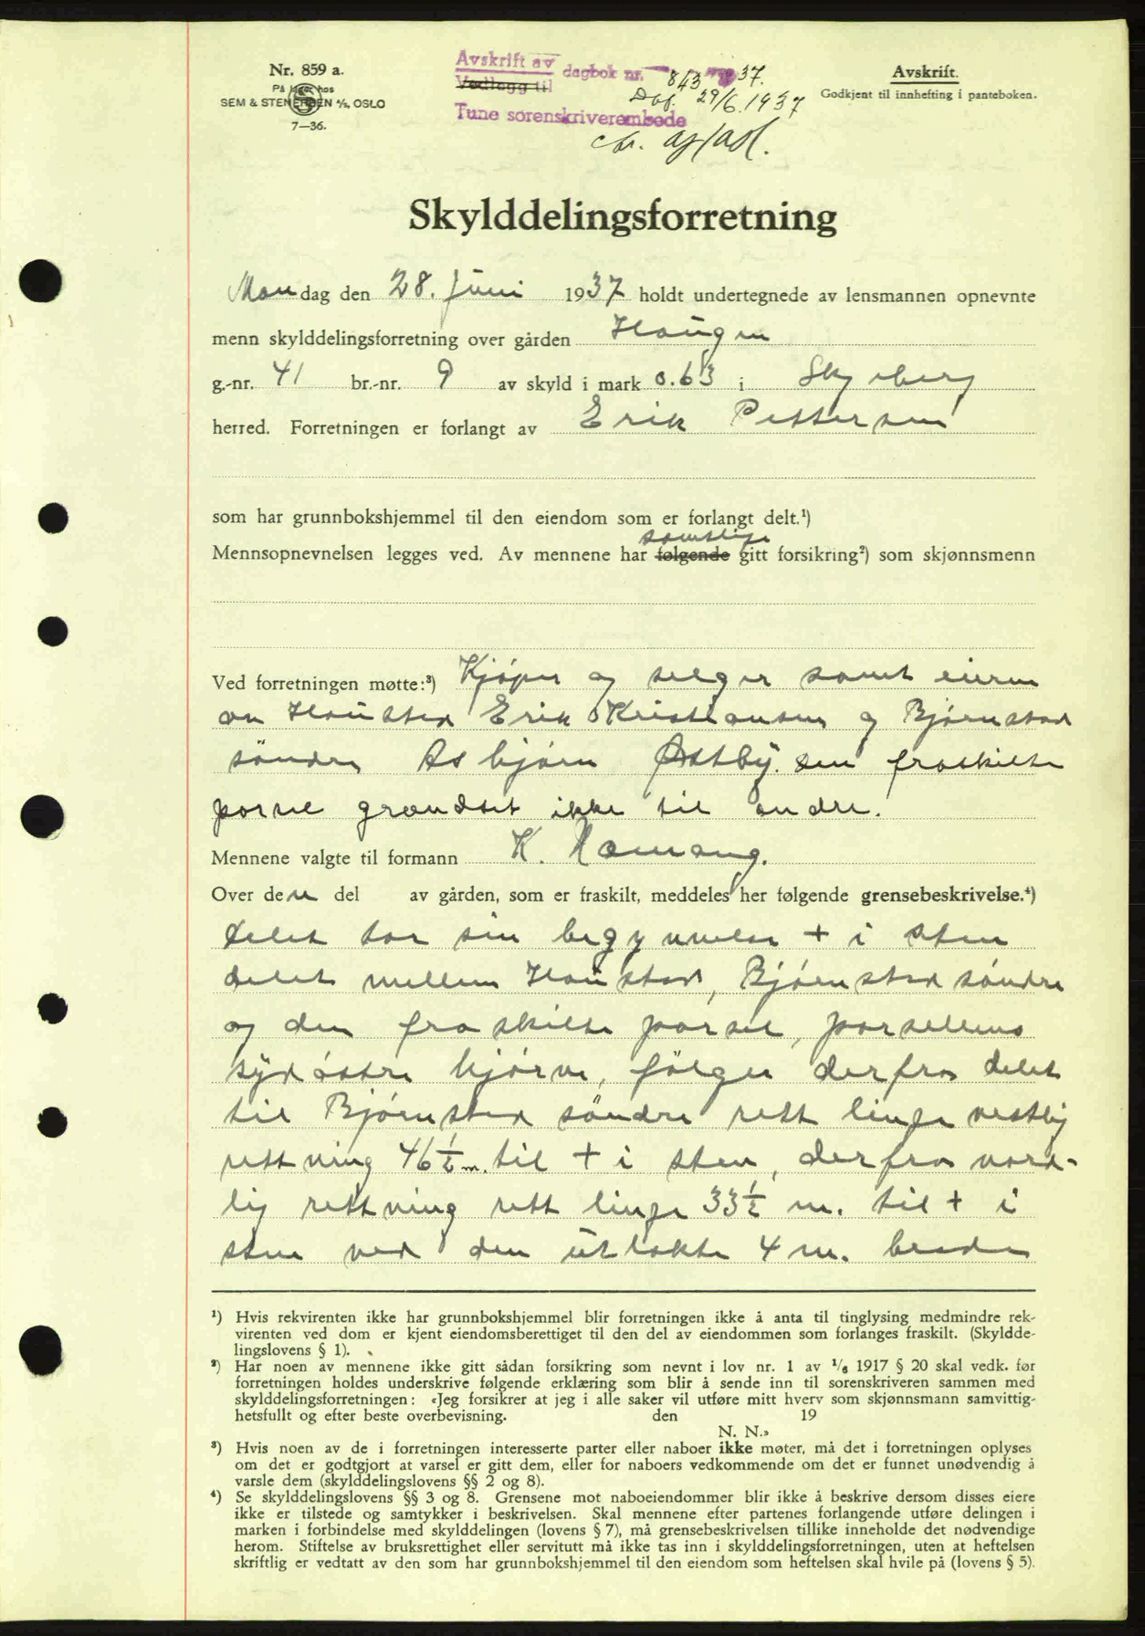 Nr. 859 a.
På lager hos
SEM & STENERSEN A/S, OSLO
7—36.
Avskrift av dagbok nr. 843 37.
Vedlegg til
Dbf. 29/6. 1937
Tune sorenskriverembede
Avskrift.
Godkjent til innhefting i panteboken.
Skylddelingsforretning
Mandag den 28. Juni 1937 holdt undertegnede av lensmannen opnevnte
menn skylddelingsforretning over gården Haugen
g.-nr. 41 br.-nr. 9 av skyld i mark 0.63 i Skjeberg
herred. Forretningen er forlangt av Erik Pettersen
som har grunnbokshjemmel til den eiendom som er forlangt delt.¹)
samtlige
Mennsopnevnelsen legges ved. Av mennene har følgende gitt forsikring²) som skjønnsmenn
Ved forretningen møtte:³) Kjøper og selger samt eieren
av Haustad Erik Kristiansen og Bjørnstad
søndre Asbjørn Østby. Den fraskilte
parsel grændset ikke til andre.
Mennene valgte til formann K. Navnang.
Over den del av gården, som er fraskilt, meddeles her følgende grensebeskrivelse.⁴)
Delet tar sin begynnelse + i sten
delet mellem Haustad, Bjørnstad søndre
og den fraskilte parsel, parsellens
sydøstre hjørne, følger derfra delet
til Bjørnstad søndre rett linje vestlig
rettning 46 ½ m. til + i sten, derfra nord-
lig rettning rett linje 33 ½ m. til + i
sten ved den utlakte 4 m. brede
¹) Hvis rekvirenten ikke har grunnbokshjemmel blir forretningen ikke å anta til tinglysing medmindre rek-
virenten ved dom er kjent eiendomsberettiget til den del av eiendommen som forlanges fraskilt. (Skyldde-
lingslovens § 1).
²) Har noen av mennene ikke gitt sådan forsikring som nevnt i lov nr. 1 av 1/6 1917 § 20 skal vedk. før
forretningen holdes underskrive følgende erklæring som blir å sende inn til sorenskriveren sammen med
skylddelingsforretningen: «Jeg forsikrer at jeg i alle saker vil utføre mitt hverv som skjønnsmann samvittig-
hetsfullt og efter beste overbevisning. den 19
N. N.»
³) Hvis noen av de i forretningen interesserte parter eller naboer ikke møter, må det i forretningen oplyses
om det er godtgjort at varsel er gitt dem, eller for naboers vedkommende om det er funnet unødvendig å
varsle dem (skylddelingslovens §§ 2 og 8).
⁴) Se skylddelingslovens §§ 3 og 8. Grensene mot naboeiendommer blir ikke å beskrive dersom disses eiere
ikke er tilstede og samtykker i beskrivelsen. Skal mennene efter partenes forlangende utføre delingen i
marken i forbindelse med skylddelingen (lovens § 7), må grensebeskrivelsen tillike inneholde det nødvendige
herom. Stiftelse av bruksrettighet eller servitutt må ikke tas inn i skylddelingsforretningen, uten at heftelsen
skriftlig er vedtatt av den som har grunnbokshjemmel til den eiendom som heftelsen skal hvile på (lovens § 5).